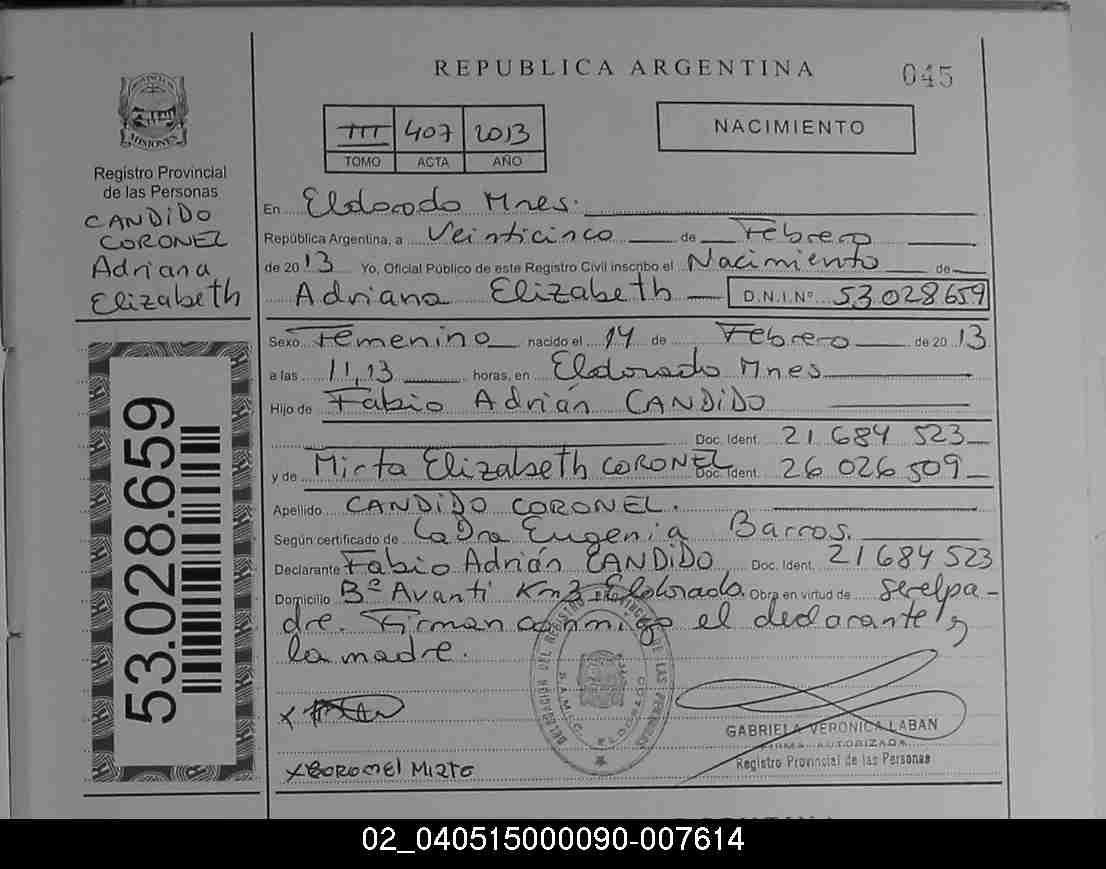 REPUBLICA ARGENTINA
045
PROVINCIA
MISIONES
Registro Provincial
de las Personas
CANDIDO
CORONEL
Adriana
Elizabeth
53.028.659
III 407 2013
TOMO ACTA AÑO
NACIMIENTO
En Eldorado Mnes.
República Argentina, a Veinticinco de Febrero
de 2013 Yo, Oficial Público de este Registro Civil inscribo el Nacimiento de
Adriana Elizabeth D.N.I.Nº 53028659
Sexo Femenino nacido el 14 de Febrero de 2013
a las 11,13 horas, en Eldorado Mnes
Hijo de Fabio Adrián CANDIDO
Doc. Ident. 21 684 523
y de Mirta Elizabeth CORONEL Doc. Ident. 26 026 509
Apellido CANDIDO CORONEL.
Según certificado de La Dra Eugenia Barros.
Declarante Fabio Adrián CANDIDO Doc. Ident. 21684523
Domicilio Bº Avanti Km3 Eldorado. Obra en virtud de ser el pa-
dre. Firman conmigo el declarante y
la madre.
DELEGACION DEL REGISTRO PROVINCIAL DE LAS PERSONAS
ELDORADO
X
GABRIELA VERONICA LABAN
FIRMA AUTORIZADA
Registro Provincial de las Personas
X Coronel Mirta
02_040515000090-007614